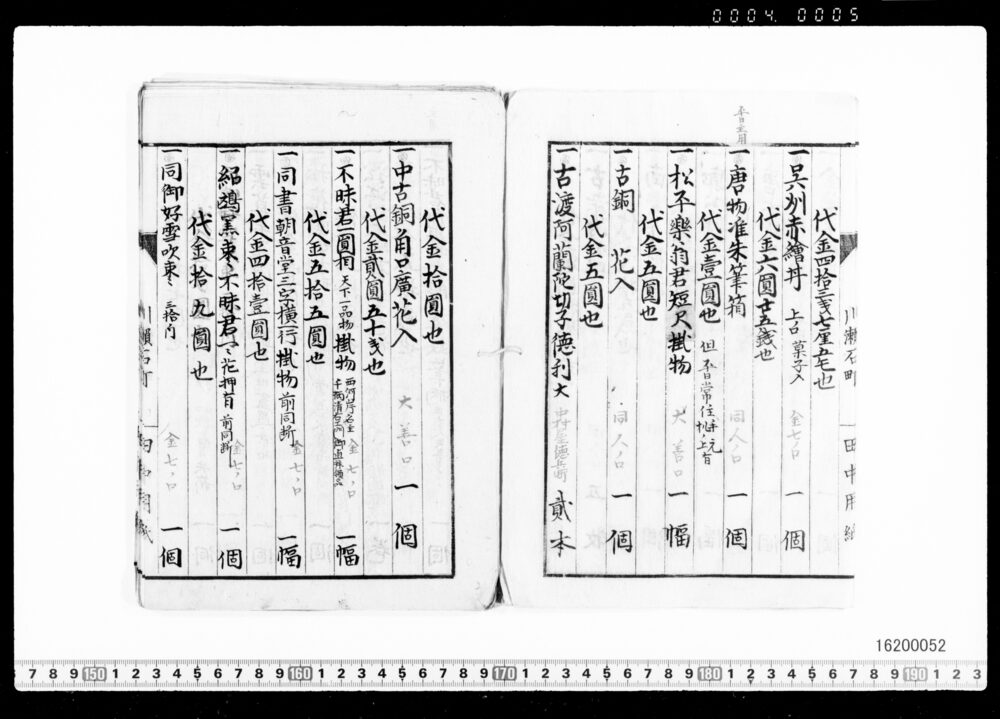 0004 0005
代金四拾三戋七厘五毛也
一 呉刕赤繪丼 上口 菓子入 金七ノ口 一個
代金六圓廿五銭也
一 唐物准朱筆箱 同人ノ口 一個
代金壹圓也
一 松平樂翁君短尺掛物 大 善口 一幅
代金五圓也
一 古銅 花入 同人ノ口 一個
代金五圓也
一 古渡阿蘭陀切子德利 大 貳本
川瀬石町 一 田中用紙
代金拾圓也
一 中古銅角口廣花入 大 善口 一個
代金貳圓五十戋也
一 不昧君一圓相 天下一品物 掛物 金七ノ口 一幅
代金五拾五圓也
一 同書朝音堂三字橫一行掛物 前同断 金七ノ口 一幅
代金四拾壹圓也
一 紹鷗黒棗 不昧君 花押有 前同断 金七ノ口 一個
代金拾九圓也
一 同御好雪吹棗 三拾内 金七ノ口 一個
川瀬石町 一 田中用紙
16200052
7 8 9 150 1 2 3 4 5 6 7 8 9 160 1 2 3 4 5 6 7 8 9 170 1 2 3 4 5 6 7 8 9 180 1 2 3 4 5 6 7 8 9 190 1 2 3